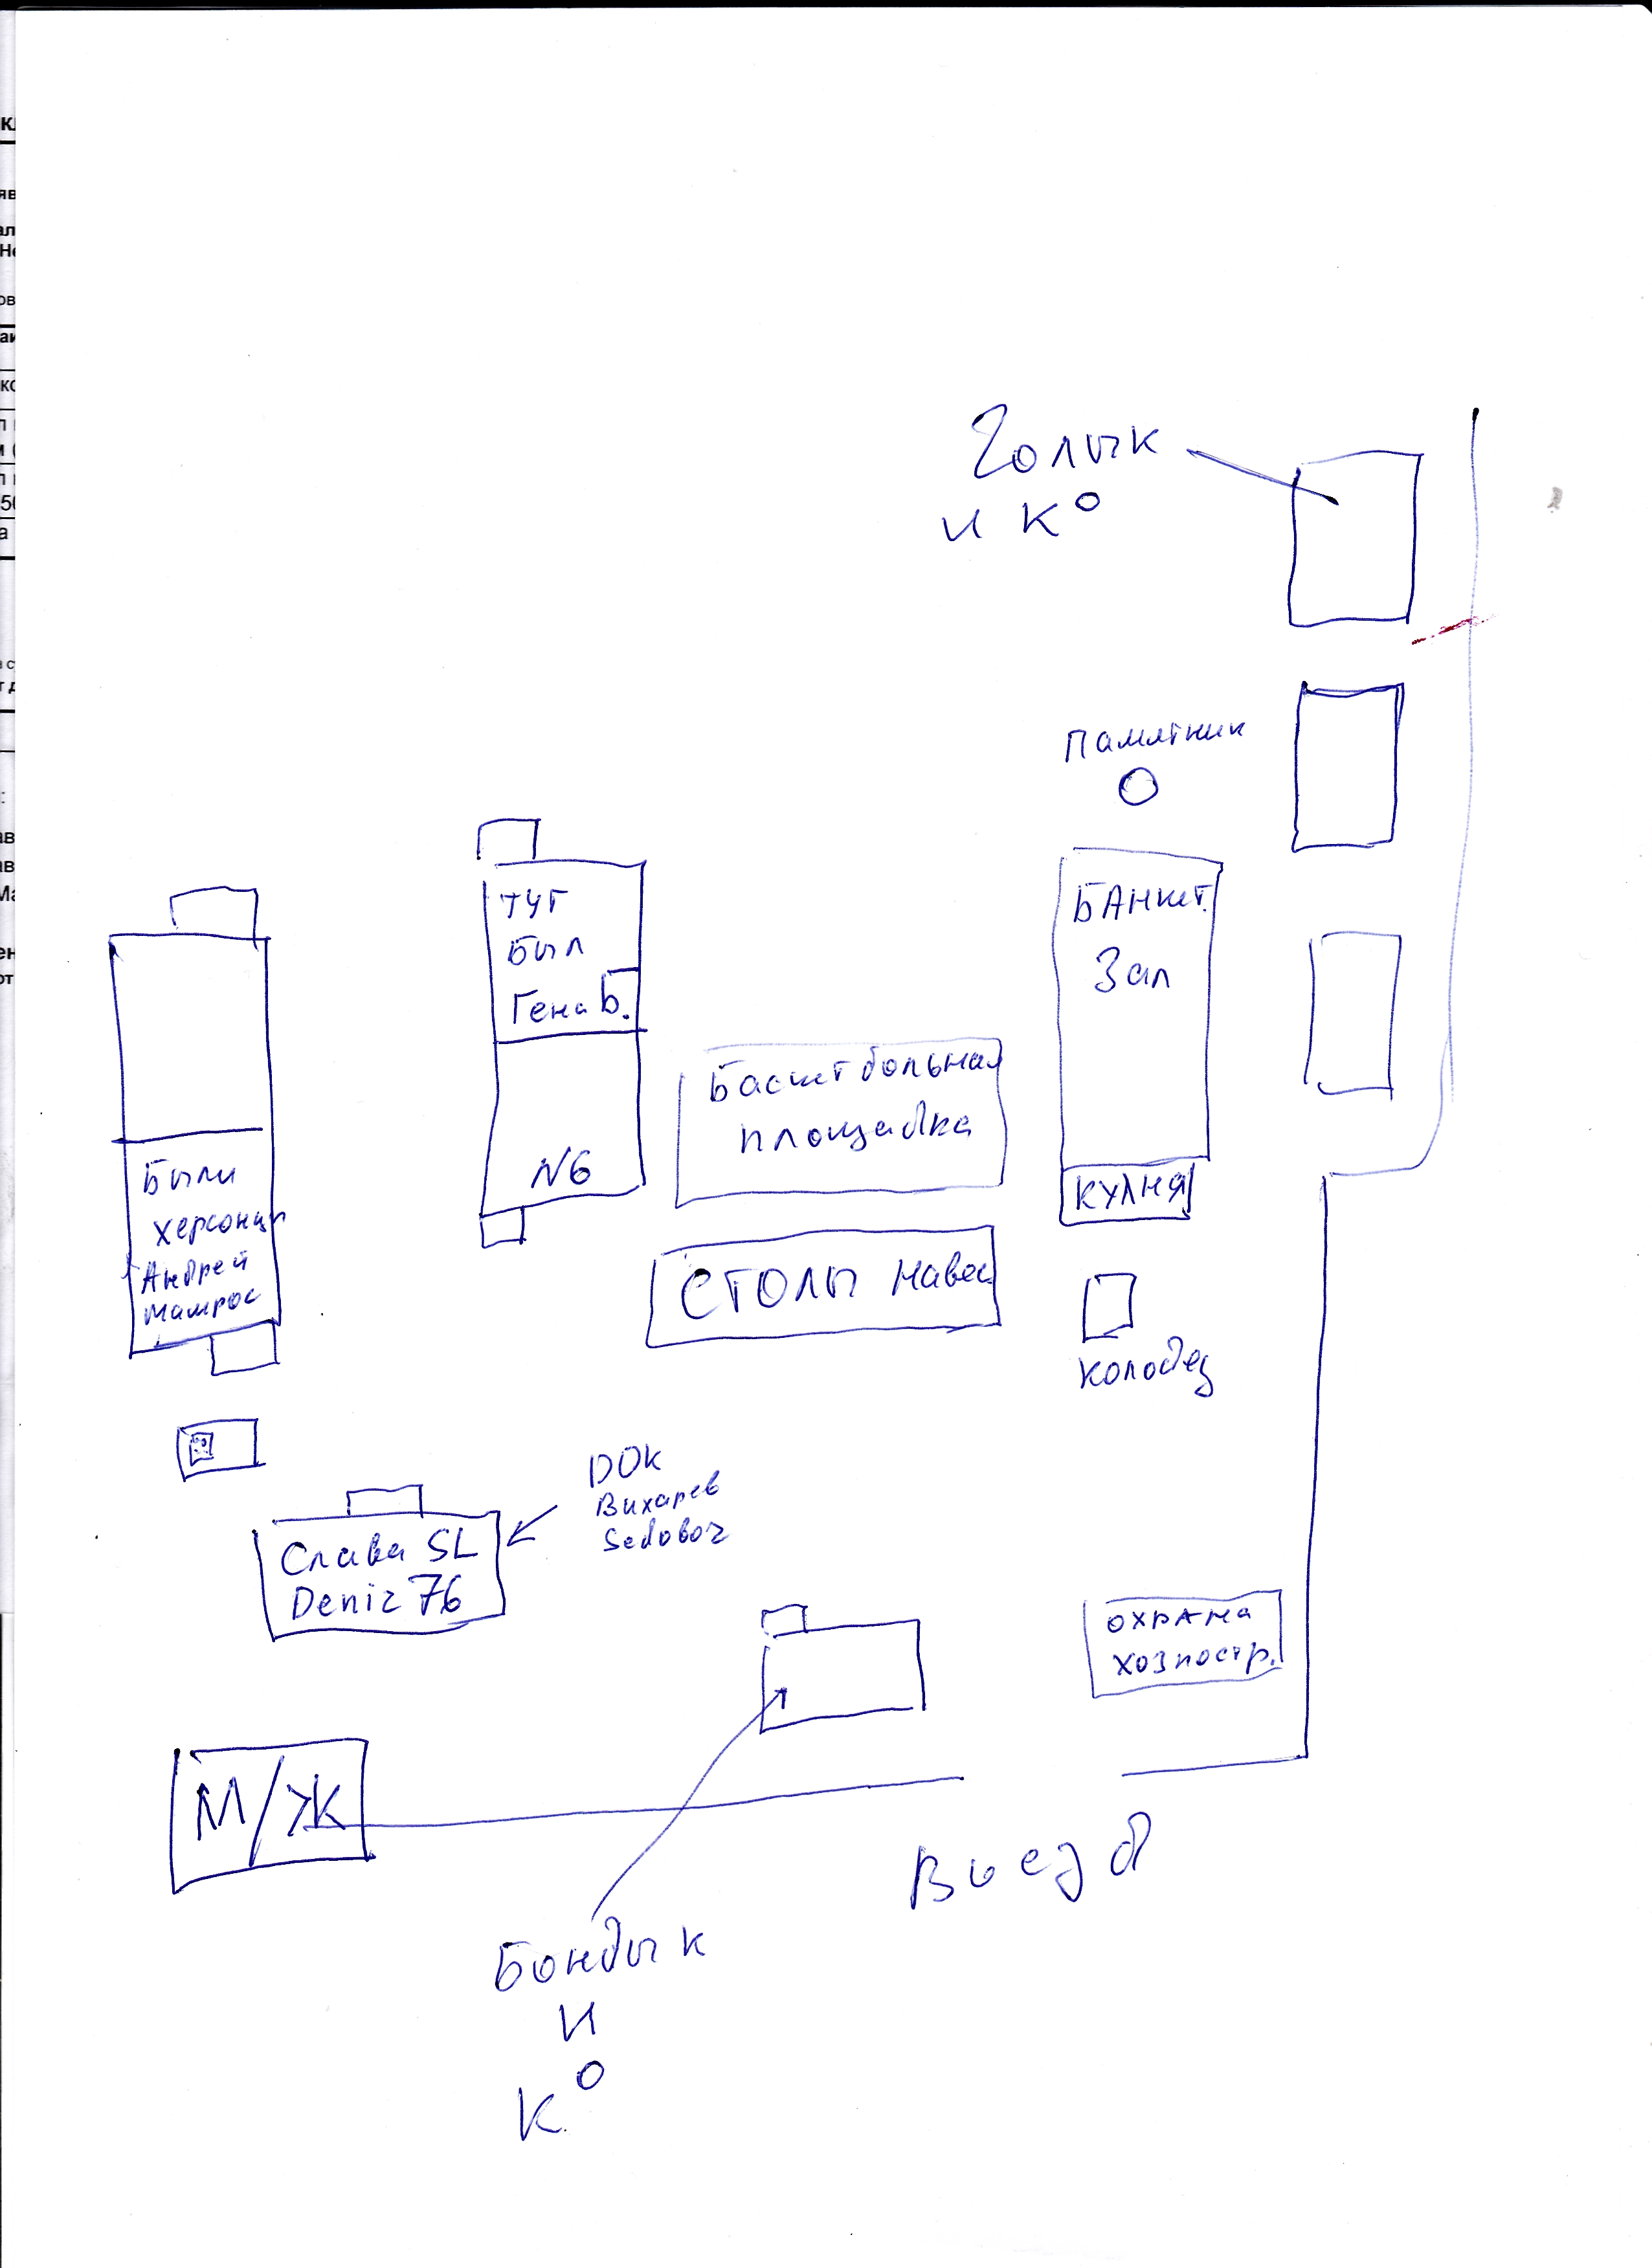 Голык
и Ко
Памятник
Тут
Был
Гена Б.
N6
Банкет.
Зал
Кухня
Баскетбольная
площадка
Столы навес
Колодец
Были
Херсонцы
Андрей
Матрос
DOK
Вихарев
Sedovoz
Слава SL
Deniz 76
охрана
хозпостр.
М/Ж
Въезд
Бондык
и
Ко